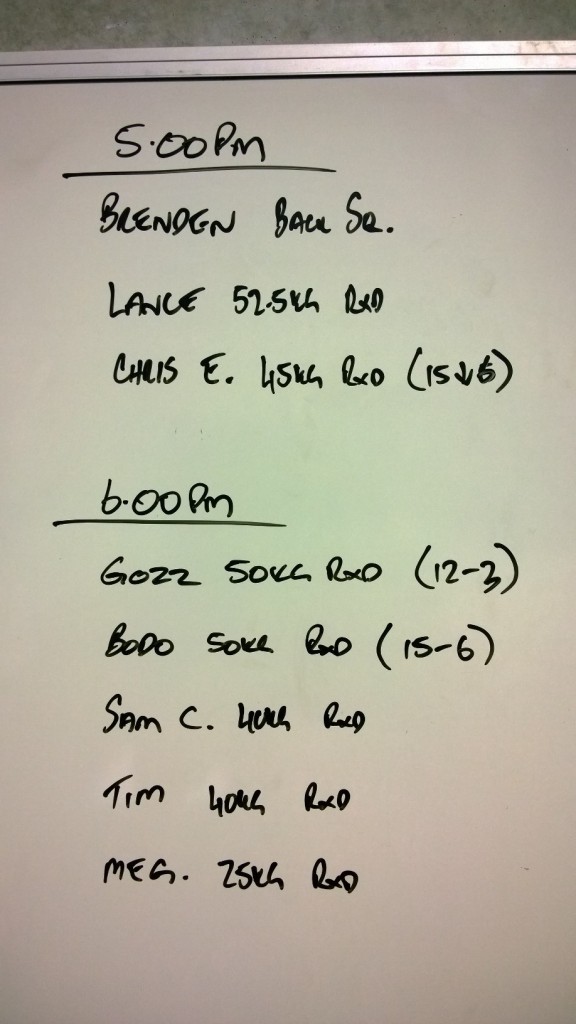 5.00PM
BRENDEN BACK SQ.
LANCE 52.5KG RXD
CHRIS E. 45KG RXD (15↓6)
6.00PM
GOZZ 50KG RXD (12-3)
BODO 50KG RXD (15-6)
SAM C. 40KG RXD
TIM 40KG RXD
MEG. 25KG RXD